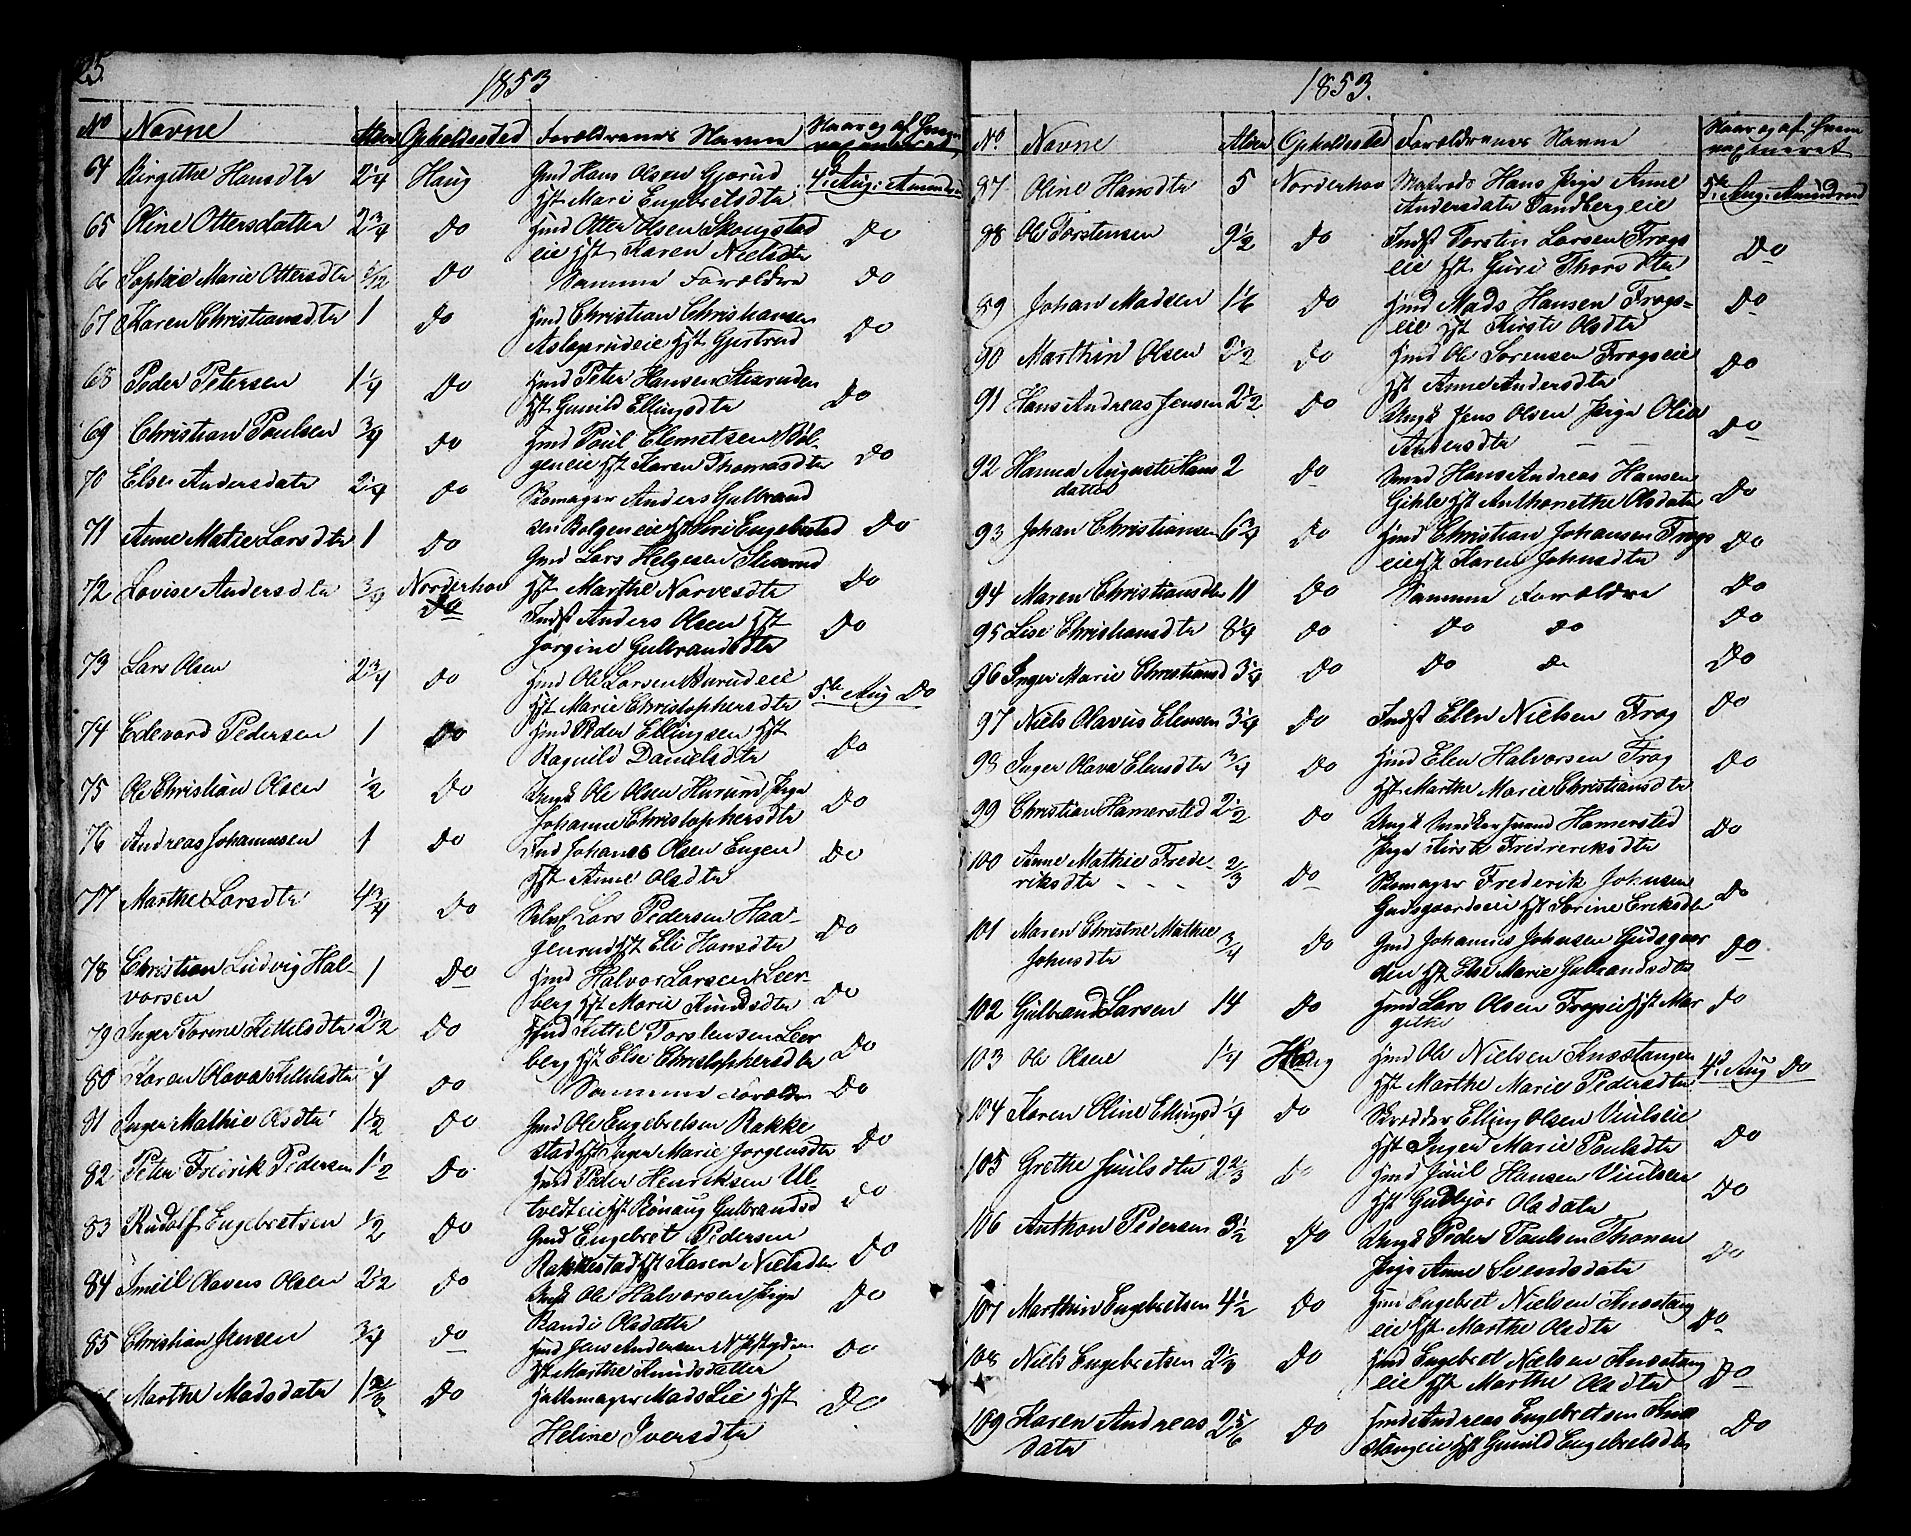 25.
1853
No Navne Alder Opholdssted Forældrenes Navne Naar og af hvem vaxineret
64 Birgithe Hansdtr 2 1/4 Haug Gmd Hans Olsen Gjørud 4de Aug: Amundrud
Hst Mari Engebretsdtr
65 Oline Ottersdatter 2 3/4 Do Hmd Otter Olsen Skougstad Do
eie Hst Karen Nielsdtr
66 Sophie Marie Ottersdtr 1/2 Do Samme Forældre Do
67 Karen Christiansdtr 1 Do Hmd Christian Christiansen Do
Aslagrudeie Hst Gjertrud
68 Peder Petersen 1 1/4 Do Hmd Peter Hansen Do
Hst Gunild Ellingsdtr
69 Christian Poulsen 3/4 Do Hmd Poul Clemetsen Bøl-
geneie Hst Karen Thomasdtr Do
70 Else Andersdatr 2 1/4 Do Skomager Anders Gulbrand
sen Bølgeneie Hst Siri Engebretsd Do
71 Anne Matie Larsdtr 1 Do Gmd Lars Helgesen
Hst Marthe Narvesdtr Do
72 Lovise Andersdtr 3/4 Norderhov Do
Indst Anders Olsen Hst Do
Jørgine Gulbrandsdtr
73 Lars Olsen 2 3/4 Do Hmd Ole Larsen Burudeie 5te Aug Do
Hst Marie Christophersdtr
74 Edevard Pedersen 1 Do Hmd Peder Ellingsen Hst Do
Ragnild Danielsdtr
75 Ole Christian Olsen 1/2 Do Ungk Ole Olsen Hurund Pige Do
Johanne Christophersdtr
76 Andreas Johannesen 1 Do Ind Johanes Olsen Eugen Do
Hst Anne Olsdtr
77 Marthe Larsdtr 4 3/4 Do Lars Pedersen Haa- Do
genrud Hst Eli Hansdtr
78 Christian Ludvig Hal- 1 Do Hmd Halvor Larsen Leer-
vorsen berg Hst Marie Knudsdtr Do
79 Inger Torine Kittilsdtr 2 1/2 Do Hmd Kittil Torstensen Leer
berg Hst Else Christophersdtr Do
80 Karen Olava Kittilsdtr 1/4 Do Samme Forældre Do
81 Inger Mathie Olsdtr 1 1/2 Do Gmd Ole Engebretsen Rakke
stad Hst Inger Marie Jørgensdtr Do
82 Peter Fredrik Pedersen 1 1/2 Do Hmd Peder Henriksen Ul-
tvedteie Hst Rønaug Gulbrandsd Do
83 Rudolf Engebretsen 1/2 Do Gmd Engebret Pedersen
Rakkestad Hst Karen Nielsdtr Do
84 Imiel Olavus Olsen 2 1/2 Do Ungk Ole Halvorsen Pige Do
Randi Olsdatter
85 Christian Jensen 3/4 Do Hmd Jens Andersen Do
Hst Marthe Amundsdatter
Marthe Madsdatr 1 Do Hattemager Mads Lie Hst Do
Heline Iversdtr
1853.
No Navne Alder Opholdssted Forældrenes Navne Naar og af hvem vaxineret
87 Oline Hansdtr 5 Norderhov Matrods Hans Pige Anne 5te Aug: Amundrud
Andersdatr Tandbergeie
88 Ole Torstensen 9 1/2 Do Indst Torsten Larsen Frogs Do
eie Hst Guri Thorsdtr
89 Johan Madsen 1 1/6 Do Hmd Mads Hansen Frogs- Do
eie Hst Kirsti Olsdtr
90 Marthin Olsen 2 1/2 Do Hmd Ole Sørensen Frogseie Do
Hst Anne Andersdtr
91 Hans Andreas Jensen 2 1/2 Do Ungk Jens Olsen Pige Olia Do
Andersdtr
92 Hanna Auguste Hans 2 Do Smed Hans Andreas Hansen
datter Gihle Hst Anthonethe Olsdatr Do
93 Johan Christiansen 6 3/4 Do Hmd Christian Johansen Frogs Do
eie Hst Karen Johnsdtr
94 Maren Christiansdtr 11 Do Samme Forældre Do
95 Lise Christiansdtr 8 1/4 Do Do Do Do
96 Inger Marie Christiansd 3 1/4 Do Do Do Do
97 Niels Olavus Elensen 3 1/4 Do Indst Ellen Nielsen Frog Do
98 Inger Olava Elensdtr 3/4 Do Hmd Elen Halvorsen Frog Do
Hst Marthe Marie Christiansdtr
99 Christian Hamersted 2 1/2 Do Ungk Snedkersvend Hamersted Do
Pige Kirsti Fredreriksdtr
100 Anne Mathie Frede- 2/3 Do Skomager Frederik Johnsen
riksdtr - - - Gudsgaardseie Hst Sørine Eriksdtr Do
101 Maren Christne Mathie 3/4 Do Gmd Johannes Johnsen Gudsgaar Do
Johnsdtr den Hst Else Marie Gulbrandsdtr
102 Gulbrand Larsen 14 Do Hmd Lars Olsen Frogseie Hst Mar Do
githe
103 Ole Olsen 1 1/4 Haug Hmd Ole Nielsen Knæstangen 4de Aug Do
Hst Marthe Marie Pedersdtr
104 Karen Oline Ellingsd 1/4 Do Skrædder Elling Olsen Viulseie
Hst Inger Marie Poulsdtr Do
105 Grethe Juulsdtr 2 2/3 Do Hmd Juul Hansen Viulseie
Hst Gudbjør Olsdatr Do
106 Anthon Pedersen 3 1/2 Do Ungk Peder Poulsen Thonen
Pige Anne Svendsdatr Do
107 Marthin Engebretsen 4 1/2 Do Hmd Engebret Nielsen Knæstang Do
eie Hst Marthe Olsdtr
108 Niels Engebretsen 2 1/4 Do Hmd Engebret Nielsen Knæstang Do
eie Hst Marthe Olsdtr
109 Karen Andreas 2 5/6 Do Hmd Andreas Engebretsen Knæ Do
datr stangeie Hst Gunild Engebretsdtr